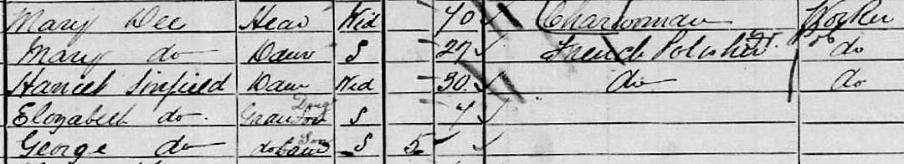 Mary Dee Head Wid 70 Charwoman Worker
Mary do Daur S 27 French Polisher do
Harriet Sinfield Daur Wid 30 do do
Elizabeth do. Grand Daug S 7
George do do Son S 5